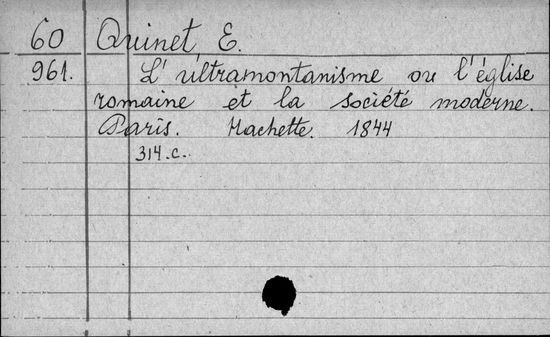 60 Quinet, E.
961. L'ultramontanisme ou l'église
romaine et la société moderne.
Paris. Hachette. 1844
314.c.